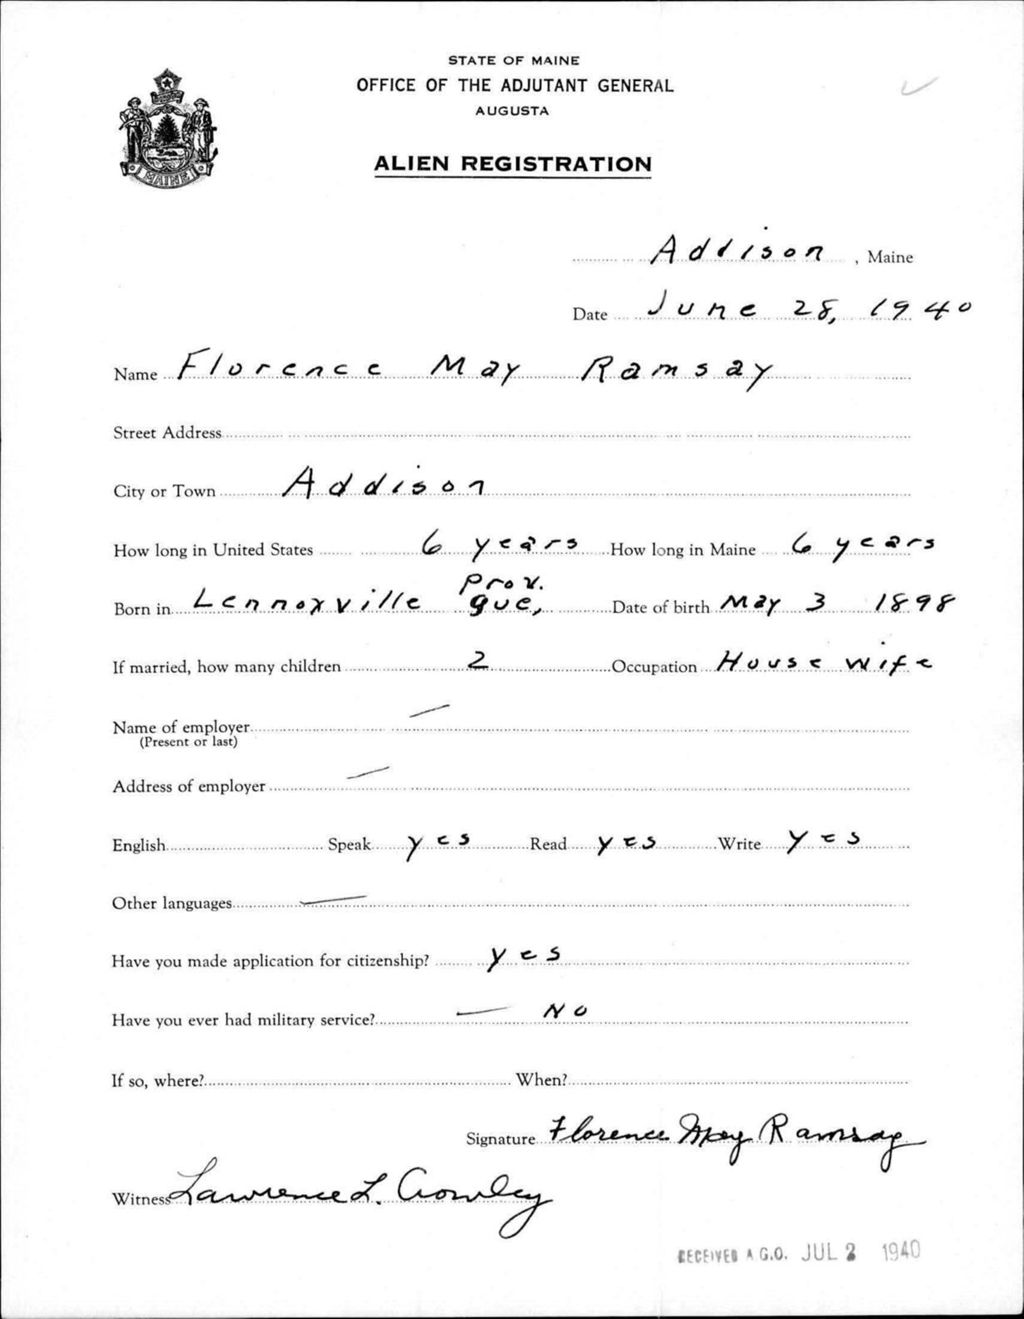 STATE OF MAINE
OFFICE OF THE ADJUTANT GENERAL
AUGUSTA
ALIEN REGISTRATION
MAINE
Addison, Maine
Date June 28, 1940
Name Florence May Ramsay
Street Address
City or Town Addison
How long in United States 6 years How long in Maine 6 years
Prov.
Born in Lennoxville Que, Date of birth May 3 1898
If married, how many children 2 Occupation House wife
Name of employer —
(Present or last)
Address of employer —
English Speak yes Read yes Write yes
Other languages —
Have you made application for citizenship? yes
Have you ever had military service? — No
If so, where? When?
Signature Florence May Ramsay
Witness Lawrence L. Crowley
RECEIVED A.G.O. JUL 2 1940